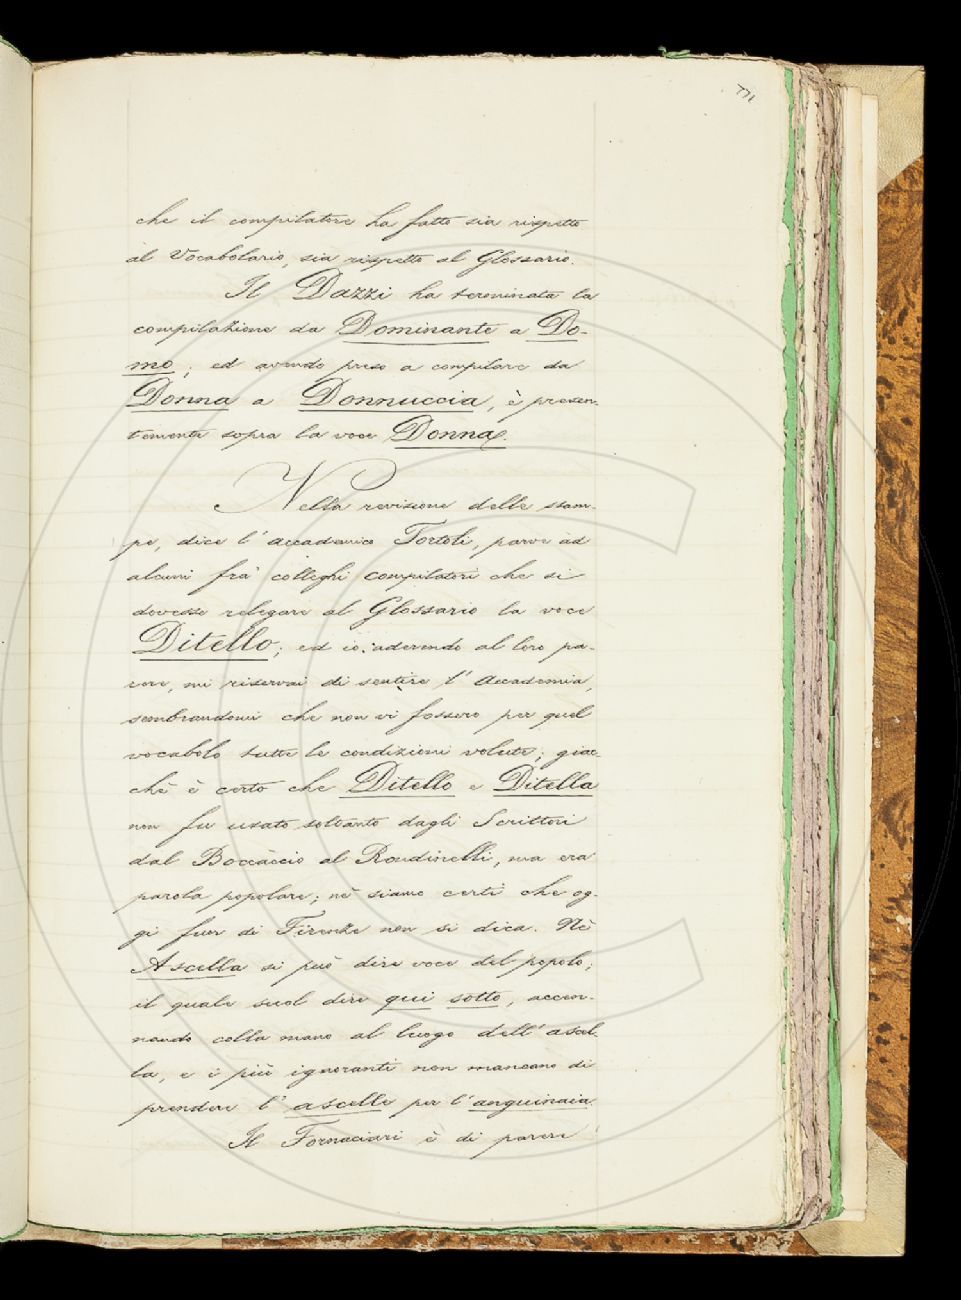 771
che il compilatore ha fatto sia rispetto
al Vocabolario, sia rispetto al Glossario.
Il Dazzi ha terminata la
compilazione da Dominante a Do-
mo; ed avendo preso a compilare da
Donna a Donnuccia, è presen-
temente sopra la voce Donna.
Nella revisione delle stam-
pe, dice l'accademico Tortoli, parve ad
alcuni fra' colleghi compilatori che si
dovesse relegare al Glossario la voce
Ditello; ed io, aderendo al loro pa-
rere, mi riservai di sentire l'Accademia,
sembrandomi che non vi fossero per quel
vocabolo tutte le condizioni volute; giac-
chè è certo che Ditello e Ditella
non fu usato soltanto dagli Scrittori
dal Boccaccio al Rondinelli, ma era
parola popolare; nè siamo certi che og-
gi fuor di Firenze non si dica. Nè
Ascella si può dire voce del popolo;
il quale suol dire qui sotto, accen-
nando colla mano al luogo dell'ascel-
la, e i più ignoranti non mancano di
prendere l'ascelle per l'anguinaia.
Il Fornaciari è di parere